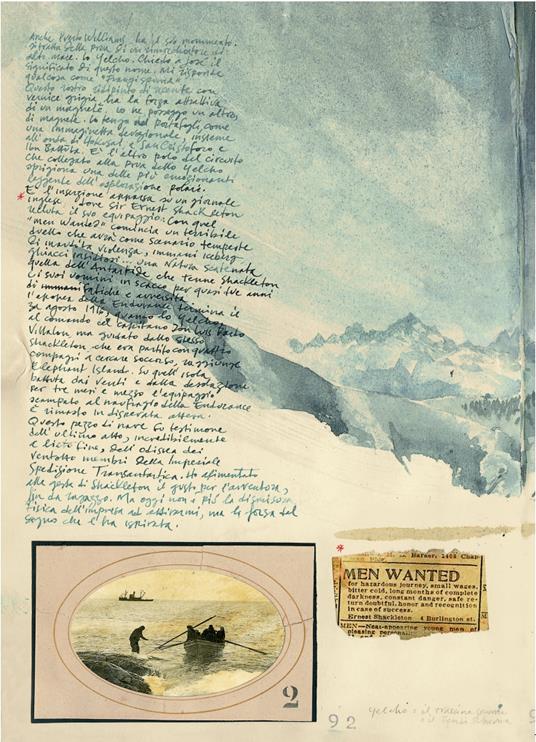 Anche Puerto Williams ha il suo monumento.
Si tratta della prua di un rimorchiatore di
alto mare. Lo Yelcho. Chiedo a José il
significato di questo nome. Mi risponde
qualcosa come
Questo rostro ridipinto di recente con
vernice grigia, ha la forza attrattiva
di un magnete. Io ne posseggo un altro,
di magnete. Lo tengo nel portafogli, come
una immaginetta devozionale, insieme
all'onda di Hokusai, a San Cristoforo e
Ibn Battuta. È l'altro polo del circuito
che collegato alla prua dello Yelcho
sprigiona una delle più emozionanti
leggende dell'esplorazione polare.
* È l'inserzione apparsa su un giornale
inglese, dove Sir Ernest Shackleton
recluta il suo equipaggio. Con quel
"men wanted" comincia un terribile
duello che avrà come scenario tempeste
di inaudita violenza, immani iceberg,
ghiacci insidiosi... una Natura scatenata
quella dell'Antartide che tenne Shackleton
e i suoi uomini in scacco per quasi due anni
di immani fatiche e avversità.
L'epopea della Endurance termina il
30 agosto 1916, quando lo Yelcho
al comando del capitano Don Luis Pardo
Villalon ma guidato dallo stesso
Shackleton che era partito con quattro
compagni a cercare soccorso, raggiunge
Elephant Island. Su quell'isola
battuta dai venti e dalla desolazione
per tre mesi e mezzo l'equipaggio
scampato al naufragio della Endurance
è rimasto in disperata attesa.
Questo pezzo di nave fu testimone
dell'ultimo atto, incredibilmente
a lieto fine, dell'odissea dei
ventotto membri della Imperiale
Spedizione Transantartica. Ho alimentato
alle gesta di Shackleton il gusto per l'avventura,
fin da ragazzo. Ma oggi non è più la
fisica dell'impresa ad attirarmi, ma la forza del
sogno che l'ha ispirata.
2
*
Chat
MEN WANTED
for hazardous journey, small wages,
bitter cold, long months of complete
darkness, constant danger, safe re-
turn doubtful, honor and recognition
in case of success.
Ernest Shackleton 4 Burlington st.
MEN—Neat-appearing young men of
pleasing
92
Yelcho